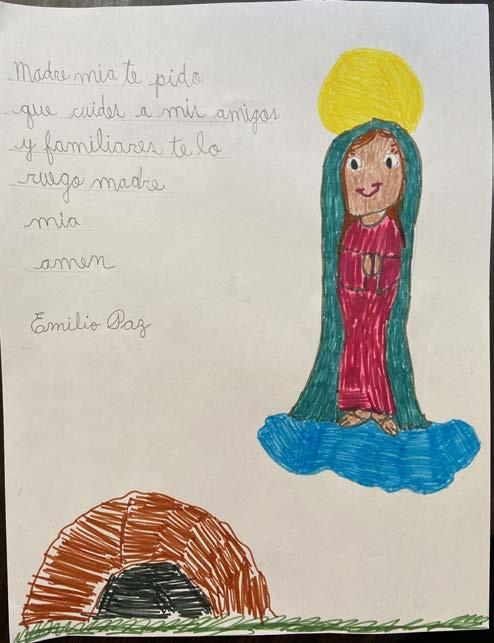 Madre mia te pido
que cuides a mis amigos
y familiares te lo
ruego madre
mia
amen
Emilio Paz